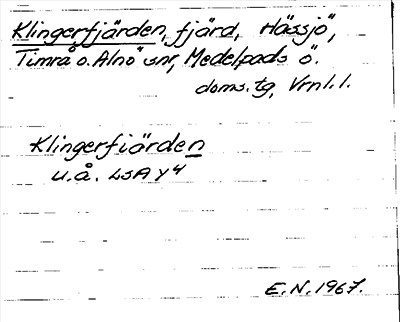 Klingerfjärden, fjärd, Hässjö,
Timrå o. Alnö snr, Medelpads ö.
doms. tg, Vrnl. l.
Klingerfiärden
u.å. LSA Y4
E.N. 1967.